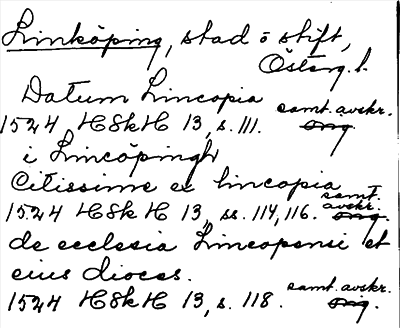 Linköping, stad o stift,
Österg. l.
Datum Lincopia
samt. avskr.
1524 HSkH 13, s. 111. orig.
i Lincöpingh
Citissime ex lincopia
samt. avskr.
1524 HSkH 13, ss. 114, 116. orig.
de ecclesia Lincopensi et
eius dioces.
samt. avskr.
1524 HSkH 13, s. 118. orig.